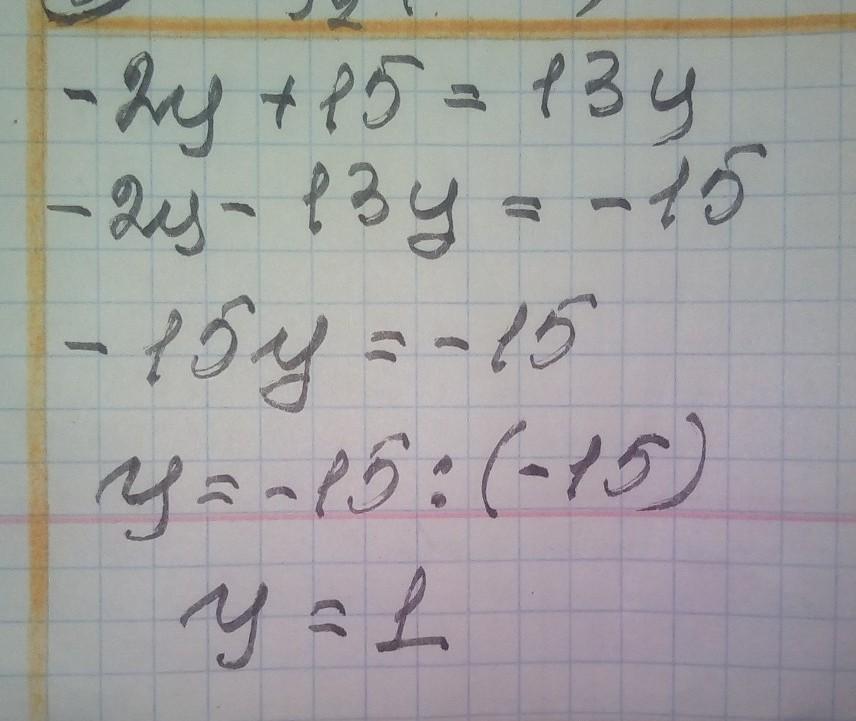 -2y + 15 = 13y
-2y - 13y = -15
-15y = -15
y = -15 : (-15)
y = 1